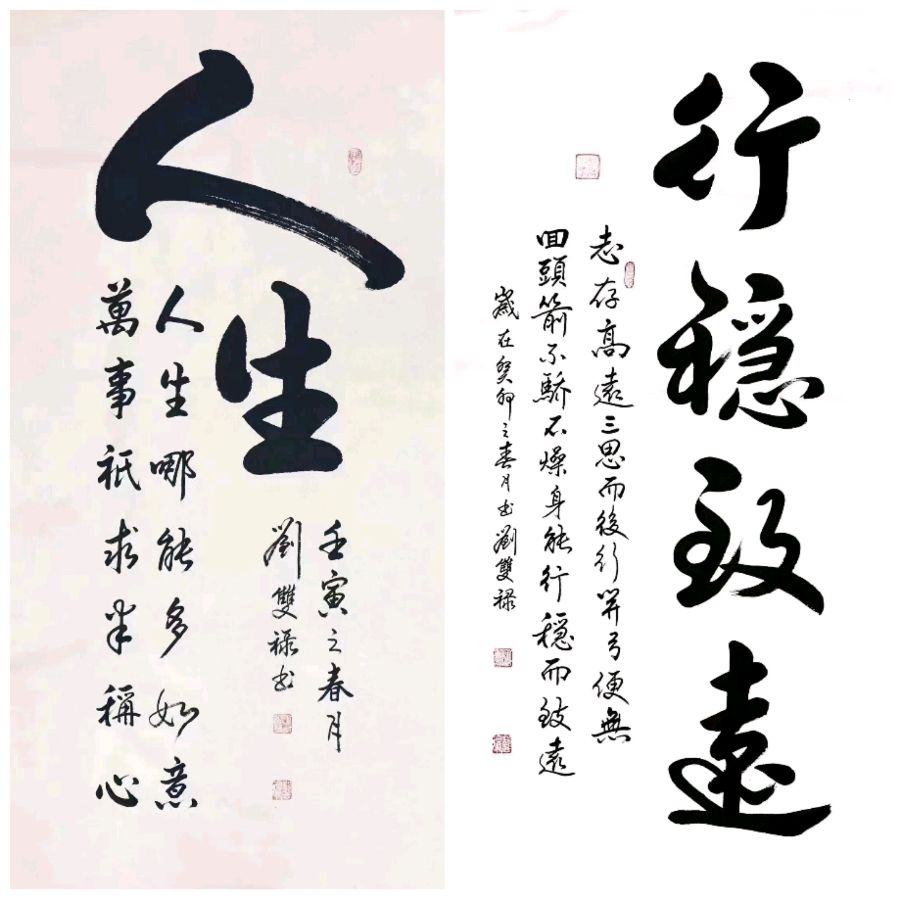 人生
人生哪能多如意
萬事衹求半稱心
壬寅之春月
劉雙祿书
行穩致遠
志存髙遠三思而後行開弓便無
回頭箭不驕不燥身能行穩而致遠
歲在癸卯之春月书劉雙祿